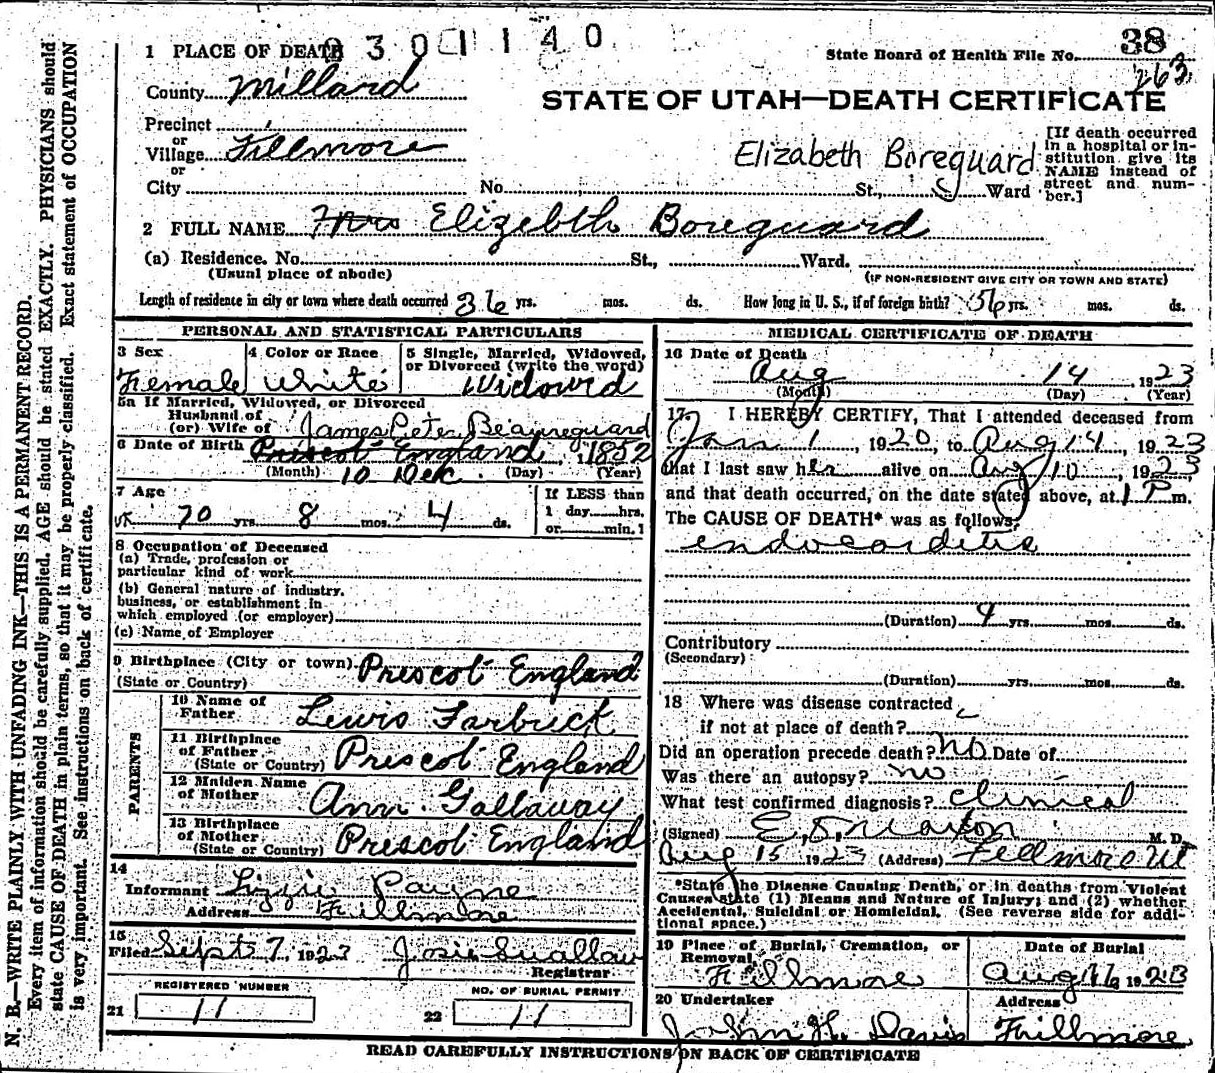 2301140
38
263
1 PLACE OF DEATH
State Board of Health File No.
County Millard
STATE OF UTAH—DEATH CERTIFICATE
Precinct
or
Village Fillmore
or
City No. St., Ward
Elizabeth Boreguard
[If death occurred in a hospital or institution give its NAME instead of street and number.]
2 FULL NAME Mrs Elizebth Boreguard
(a) Residence. No. St., Ward.
(Usual place of abode) (IF NON-RESIDENT GIVE CITY OR TOWN AND STATE)
Length of residence in city or town where death occurred 36 yrs. mos. ds. How long in U. S., if of foreign birth? 56 yrs. mos. ds.
PERSONAL AND STATISTICAL PARTICULARS
3 Sex 4 Color or Race 5 Single, Married, Widowed, or Divorced (write the word)
Female White Widowd
5a If Married, Widowed, or Divorced
Husband of
(or) Wife of James Peter Beaureguard
6 Date of Birth Priscot England, 1852
(Month) 10 Dec. (Day) (Year)
7 Age If LESS than
70 yrs. 8 mos. 4 ds. 1 day hrs.
or min.
8 Occupation of Deceased
(a) Trade, profession or
particular kind of work
(b) General nature of industry,
business, or establishment in
which employed (or employer)
(c) Name of Employer
9 Birthplace (City or town) Prescot England
(State or Country)
PARENTS
10 Name of
Father Lewis Farbrick
11 Birthplace
of Father
(State or Country) Priscot England
12 Maiden Name
of Mother Ann Gallaway
13 Birthplace
of Mother
(State or Country) Prescot England
14
Informant Lizzie Payne
Address Fillmore
15
Filed Sept 7 1923 Josie Swallow
Registrar
REGISTERED NUMBER NO. OF BURIAL PERMIT
21 11 22 11
MEDICAL CERTIFICATE OF DEATH
16 Date of Death
Aug 14, 1923
(Month) (Day) (Year)
17 I HEREBY CERTIFY, That I attended deceased from
Jan 1, 1920, to Aug 14, 1923
that I last saw her alive on Aug 10, 1923
and that death occurred, on the date stated above, at 1 P m.
The CAUSE OF DEATH* was as follows:
endocarditis
(Duration) 4 yrs. mos. ds.
Contributory
(Secondary)
(Duration) yrs. mos. ds.
18 Where was disease contracted
if not at place of death?
Did an operation precede death? no Date of
Was there an autopsy? no
What test confirmed diagnosis? Clinical
(Signed) M. D.
Aug 15 1923 (Address) Fillmore Ut
*State the Disease Causing Death, or in deaths from Violent
Causes state (1) Means and Nature of Injury; and (2) whether
Accidental, Suicidal or Homicidal. (See reverse side for addi-
tional space.)
19 Place of Burial, Cremation, or Date of Burial
Removal
Fillmore Aug 16, 1923
20 Undertaker Address
John H. Davis Fillmore
READ CAREFULLY INSTRUCTIONS ON BACK OF CERTIFICATE
N. B.—WRITE PLAINLY WITH UNFADING INK—THIS IS A PERMANENT RECORD.
Every item of information should be carefully supplied. AGE should be stated EXACTLY. PHYSICIANS should
state CAUSE OF DEATH in plain terms, so that it may be properly classified. Exact statement of OCCUPATION
is very important. See instructions on back of certificate.